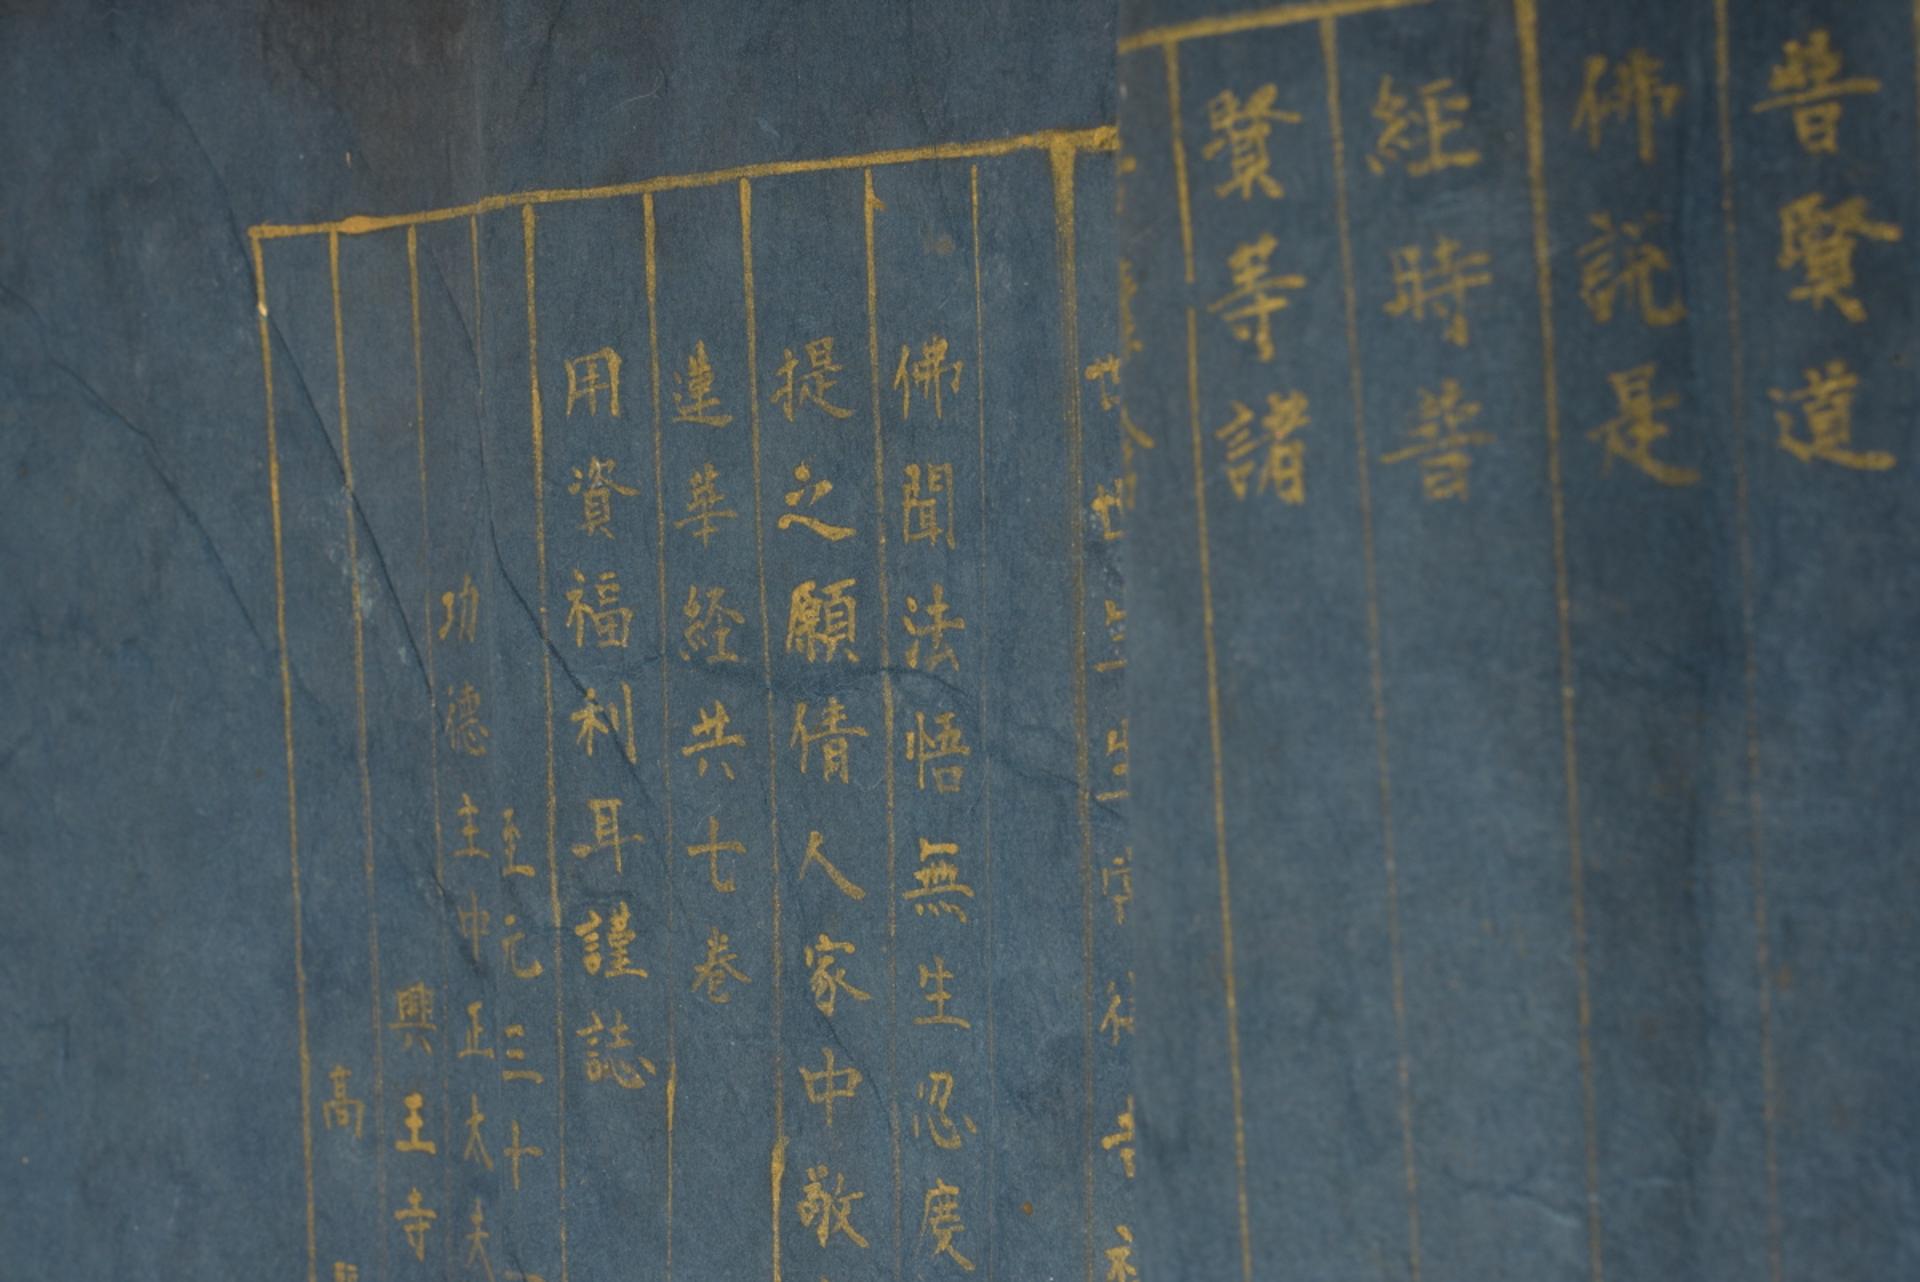 普賢道
佛說是
經時普
賢等諸
佛聞法悟無生忍度
提之願倩人家中敬
蓮華経共七巻
用資福利耳謹誌
至元三十
功德主中正大夫
興王寺
高